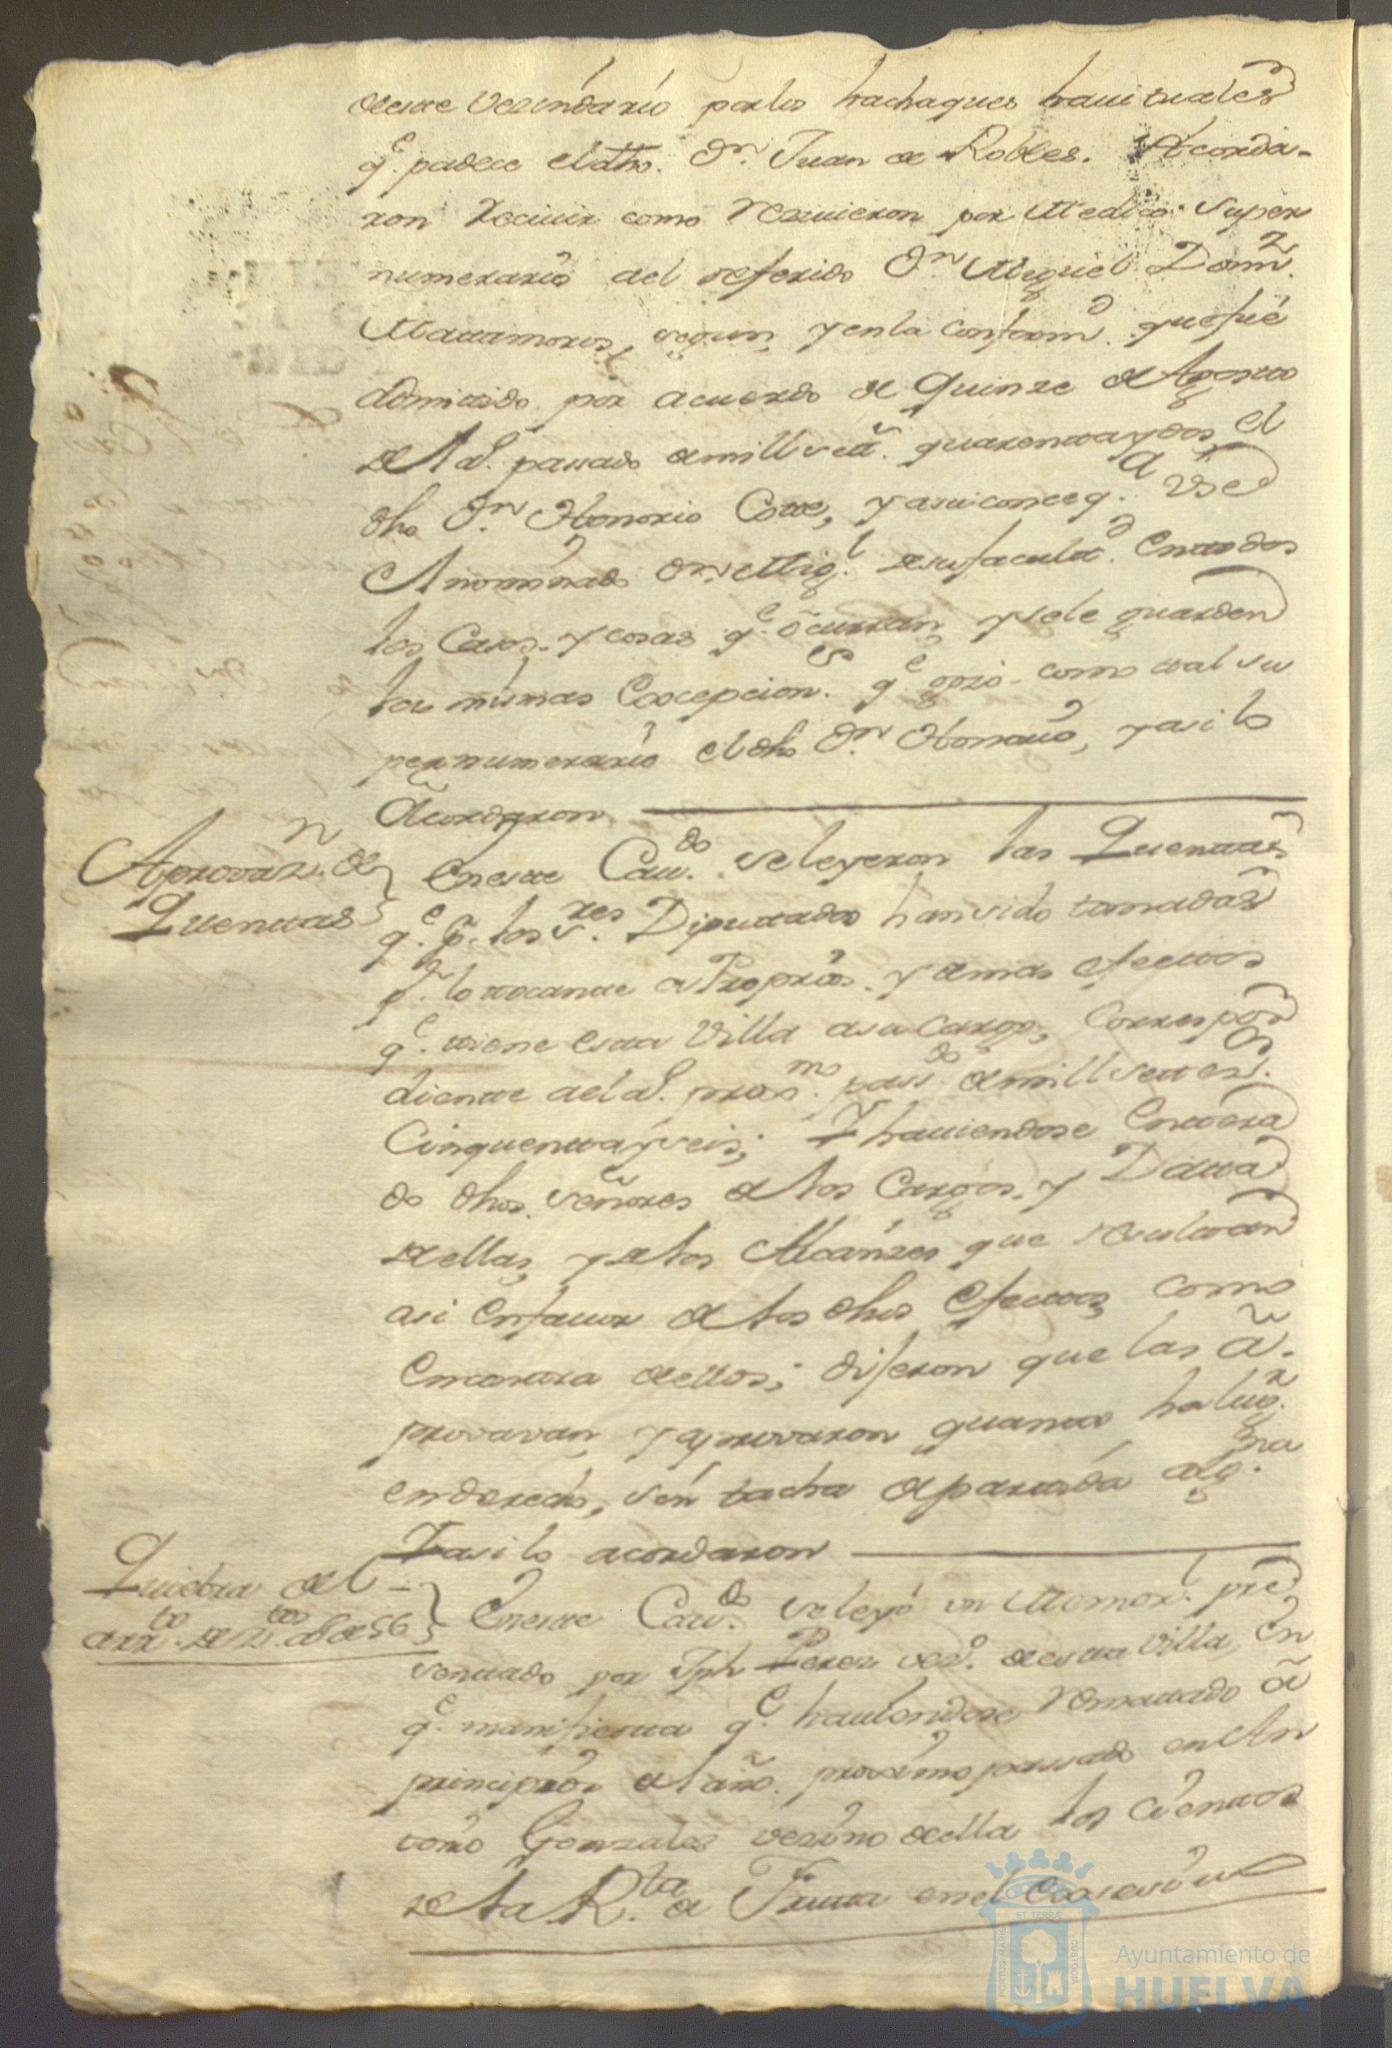 deste vezindario por los hachaques havituales
q.e padece el dho. Dn. Juan de Robles. Acorda-
ron recivir como recivieron por Medico super
numerario al referido Dn. Miguel Domz.
Mattamoros, segun, y en la conformd. que fué
admitido por acuerdo de quinze de Agosto
del a.o passado de mill settª. quarenta y dos, el
dho Dn. Honorio Cotte, y asu conseq.ª Vse
Anominado Dn. Mig.l de su facultad. En todos
los casos y cosas q.e ocurran, y se le guarden
las mismas Excepcion.s q.e gozó como tal su
pernumerario el dho Dn. Honorio, y asi lo
Acordaron
Aprovazn. de
Quentas
En este Cavdo. se leyeron las Quentas
q.e p.r los s.res Diputados han sido tomadas
p.r lo tocante a Proprios y demas efectos
q.e tiene esta Villa a su cargo, Correspon
diente al a.o proxmo. passdo. de mill settes.
Cinquenta y seis; Y haviendose Entera
do dhos. señores de los Cargos y Datta
de ellas, y de los Alcanzes que resultan
asi en favor de los dhos Efectos, como
En contra de ellos; dijeron que las a-
provavan, y aprovaron quanto ha lugr.
en derecho, sin tacha de partida algna
Y asi lo acordaron
Quiebra del
arrto. de Vtos. año de 56
En este Cavdo. se leyó un Memor.l pre
sentado por Jph Perez vezo. de esta Villa, En
q.e manifiesta q.e haviendose rematado a
principios del año proximo passado en An
tonio Gonzales vezino de ella los vientos
de la R.ta de Fruta en el
Ayuntamiento de
HUELVA